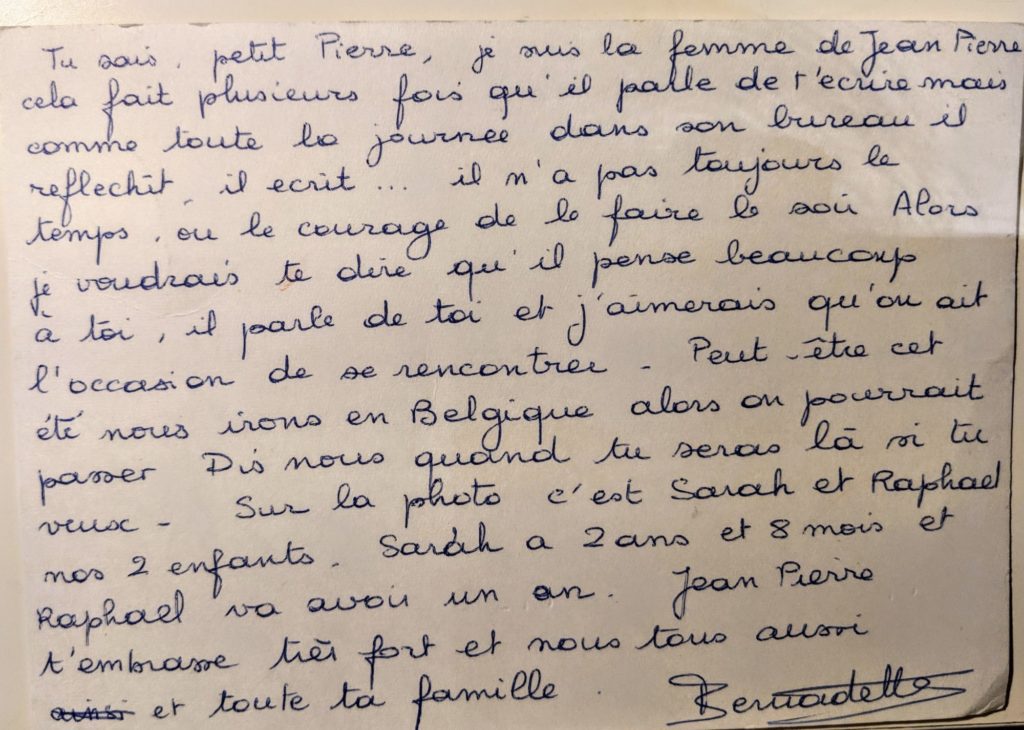 Tu sais, petit Pierre, je suis la femme de Jean Pierre
cela fait plusieurs fois qu'il parle de t'ecrire mais
comme toute la journée dans son bureau il
reflechit, il ecrit... il n'a pas toujours le
temps, ou le courage de le faire le soir Alors
je voudrais te dire qu'il pense beaucoup
à toi, il parle de toi et j'aimerais qu'on ait
l'occasion de se rencontrer - Peut-être cet
été nous irons en Belgique alors on pourrait
passer Dis nous quand tu seras là si tu
veux - Sur la photo c'est Sarah et Raphael
nos 2 enfants. Sarah a 2 ans et 8 mois et
Raphael va avoir un an. Jean Pierre
t'embrasse très fort et nous tous aussi
ainsi et toute ta famille.
Bernadette